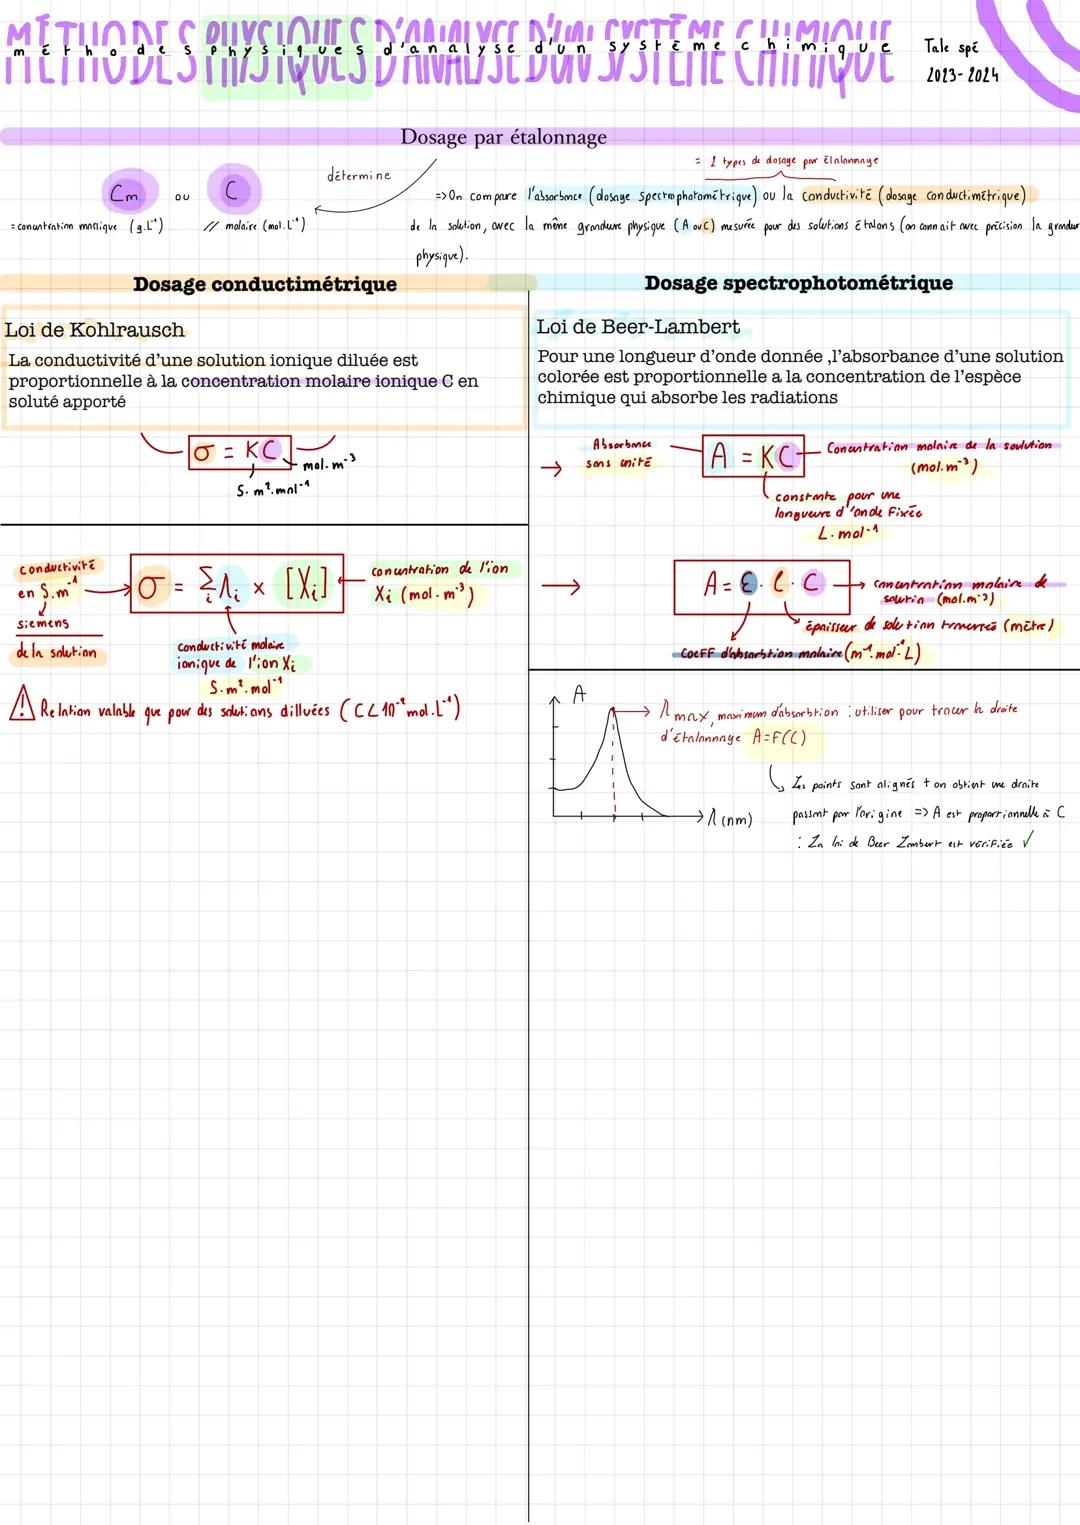 MÉTHODES PHYSIQUES D'ANALYSE D'UN SYSTÈME CHIMIQUE
méthodes physiques d'analyse d'un système chimique
Tale spé
2023-2024
Dosage par étalonnage
= 2 types de dosage par étalonnage
détermine
Cm ou C
=> On compare l'absorbance (dosage spectrophotométrique) ou la conductivité (dosage conductimétrique)
= concentration massique (g.L⁻¹) // molaire (mol.L⁻¹)
de la solution, avec la même grandeure physique (A ou C) mesurée pour des solutions étalons (on connait avec précision la grandeur
physique).
Dosage conductimétrique
Loi de Kohlrausch
La conductivité d'une solution ionique diluée est
proportionnelle à la concentration molaire ionique C en
soluté apporté
σ = KC
mol.m⁻³
S.m².mol⁻¹
conductivité
en S.m⁻¹
siemens
de la solution
σ = Σᵢ Λᵢ × [Xᵢ]
concentration de l'ion
Xᵢ (mol.m⁻³)
conductivité molaire
ionique de l'ion Xᵢ
S.m².mol⁻¹
⚠ Relation valable que pour des solutions dilluées (C<10⁻² mol.L⁻¹)
Dosage spectrophotométrique
Loi de Beer-Lambert
Pour une longueur d'onde donnée ,l'absorbance d'une solution
colorée est proportionnelle a la concentration de l'espèce
chimique qui absorbe les radiations
Absorbance
sans unité
A = KC
Concentration molaire de la soulution
(mol.m⁻³)
constante pour une
longueure d'onde fixée
L.mol⁻¹
A = ε . l . C
concentration molaire de
solution (mol.m⁻³)
épaisseur de solution traversée (mètre)
coeff d'absorbtion molaire (m⁻¹.mol⁻¹.L)
A
λ max, maximum d'absorbtion : utiliser pour tracer la droite
d'étalonnage A=F(C)
Les points sont alignés + on obtient une droite
λ (nm)
passant par l'origine => A est proportionnelle à C
: La loi de Beer Lambert est vérifiée ✓